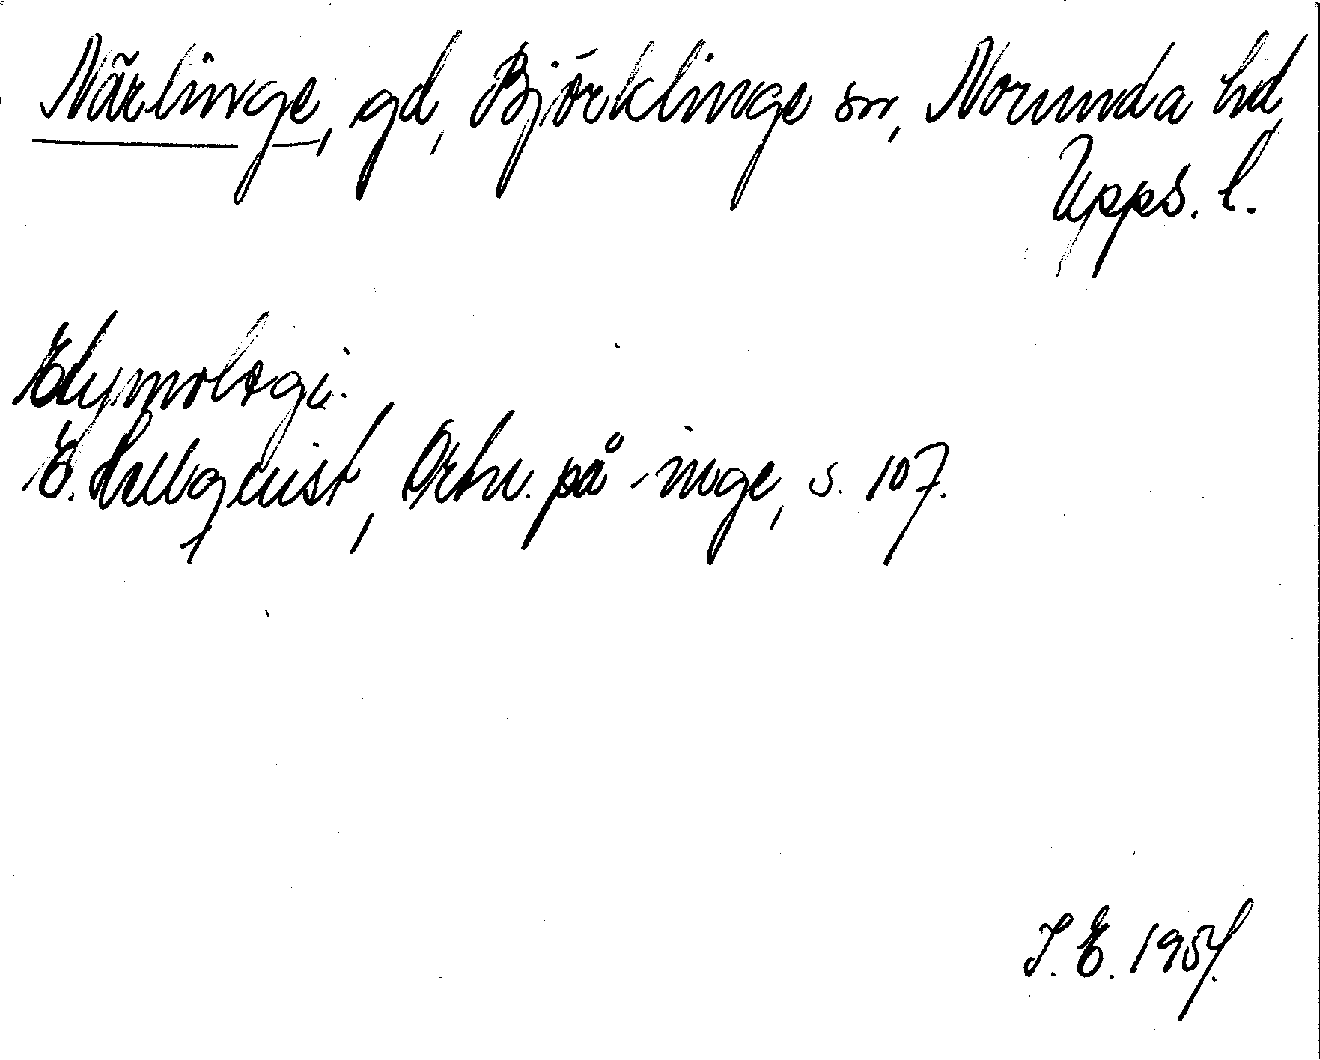 Närlinge, gd, Björklinge sn, Norunda hd,
Upps. l.
Etymologi.
E. Hellquist, Ortn. på -inge, s. 107.
I. E. 1954.